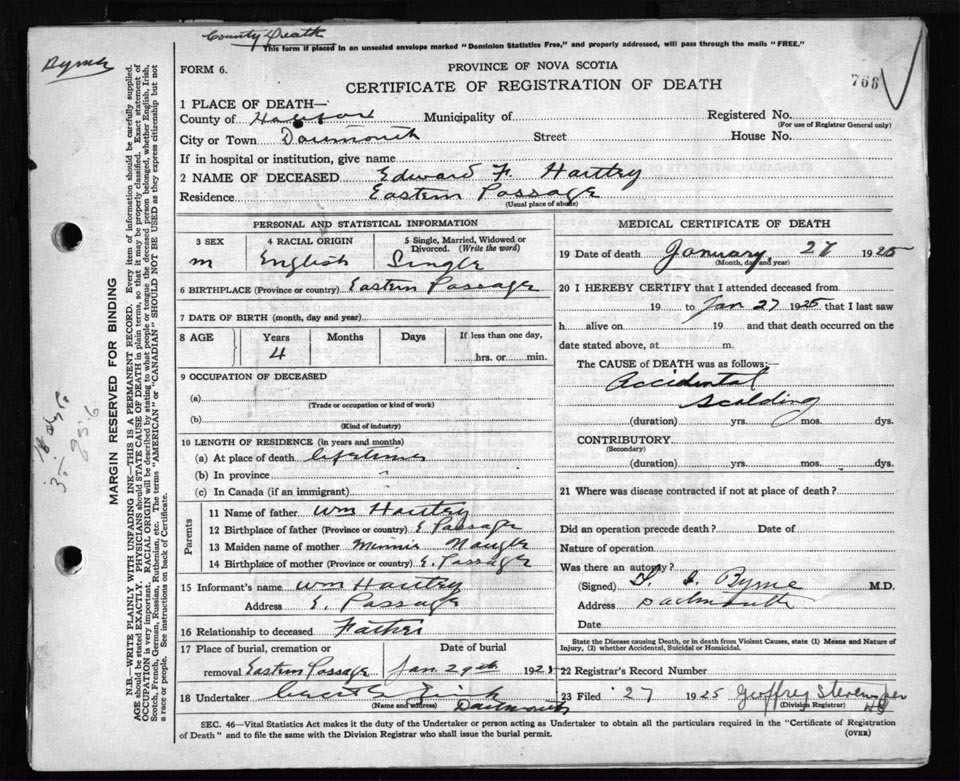 County Death
This form if placed in an unsealed envelope marked "Dominion Statistics Free," and properly addressed, will pass through the mails "FREE."
Byrne
FORM 6.
PROVINCE OF NOVA SCOTIA
CERTIFICATE OF REGISTRATION OF DEATH
766
1 PLACE OF DEATH—
County of Halifax Municipality of Registered No.
(For use of Registrar General only)
City or Town Dartmouth Street House No.
If in hospital or institution, give name
2 NAME OF DECEASED Edward F. Hartry
Residence Eastern Passage
(Usual place of abode)
PERSONAL AND STATISTICAL INFORMATION
3 SEX 4 RACIAL ORIGIN 5 Single, Married, Widowed or Divorced. (Write the word)
m English Single
6 BIRTHPLACE (Province or country) Eastern Passage
7 DATE OF BIRTH (month, day and year)
8 AGE Years Months Days If less than one day,
4 hrs. or min.
9 OCCUPATION OF DECEASED
(a)
(Trade or occupation or kind of work)
(b)
(Kind of industry)
10 LENGTH OF RESIDENCE (in years and months)
(a) At place of death lifetime
(b) In province "
(c) In Canada (if an immigrant)
Parents
11 Name of father Wm Hartry
12 Birthplace of father (Province or country) E Passage
13 Maiden name of mother Minnie Naugle
14 Birthplace of mother (Province or country) E. Passage
15 Informant's name Wm Hartry
Address E. Passage
16 Relationship to deceased Father
17 Place of burial, cremation or Date of burial
removal Eastern Passage Jan 29th 1925
18 Undertaker Zink
(Name and address) Dartmouth
MEDICAL CERTIFICATE OF DEATH
19 Date of death January 27 1925
(Month, day and year)
20 I HEREBY CERTIFY that I attended deceased from
19 to Jan 27 1925 that I last saw
h alive on 19 and that death occurred on the
date stated above, at m.
The CAUSE of DEATH was as follows:—
Accidental
Scalding
(duration) yrs. mos. dys.
CONTRIBUTORY
(Secondary)
(duration) yrs. mos. dys.
21 Where was disease contracted if not at place of death?
Did an operation precede death? Date of
Nature of operation
Was there an autopsy?
(Signed) Byrne M.D.
Address Dartmouth
Date
State the Disease causing Death, or in death from Violent Causes, state (1) Means and Nature of
Injury, (2) whether Accidental, Suicidal or Homicidal.
22 Registrar's Record Number
23 Filed 27 1925 Geoffrey Stevens
(Division Registrar)
SEC. 46—Vital Statistics Act makes it the duty of the Undertaker or person acting as Undertaker to obtain all the particulars required in the "Certificate of Registration
of Death" and to file the same with the Division Registrar who shall issue the burial permit.
(OVER)
MARGIN RESERVED FOR BINDING
N.B.—WRITE PLAINLY WITH UNFADING INK—THIS IS A PERMANENT RECORD. Every item of information should be carefully supplied.
AGE should be stated EXACTLY. PHYSICIANS should STATE CAUSE OF DEATH in plain terms, so that it may be properly classified. Exact statement of
OCCUPATION is very important. RACIAL ORIGIN will be described by stating to what people or tongue the deceased person belonged, whether English, Irish,
Scotch, French, German, Russian, Ruthenian, etc. The terms "AMERICAN" or "CANADIAN" SHOULD NOT BE USED as they express citizenship but not
a race or people. See instructions on back of Certificate.